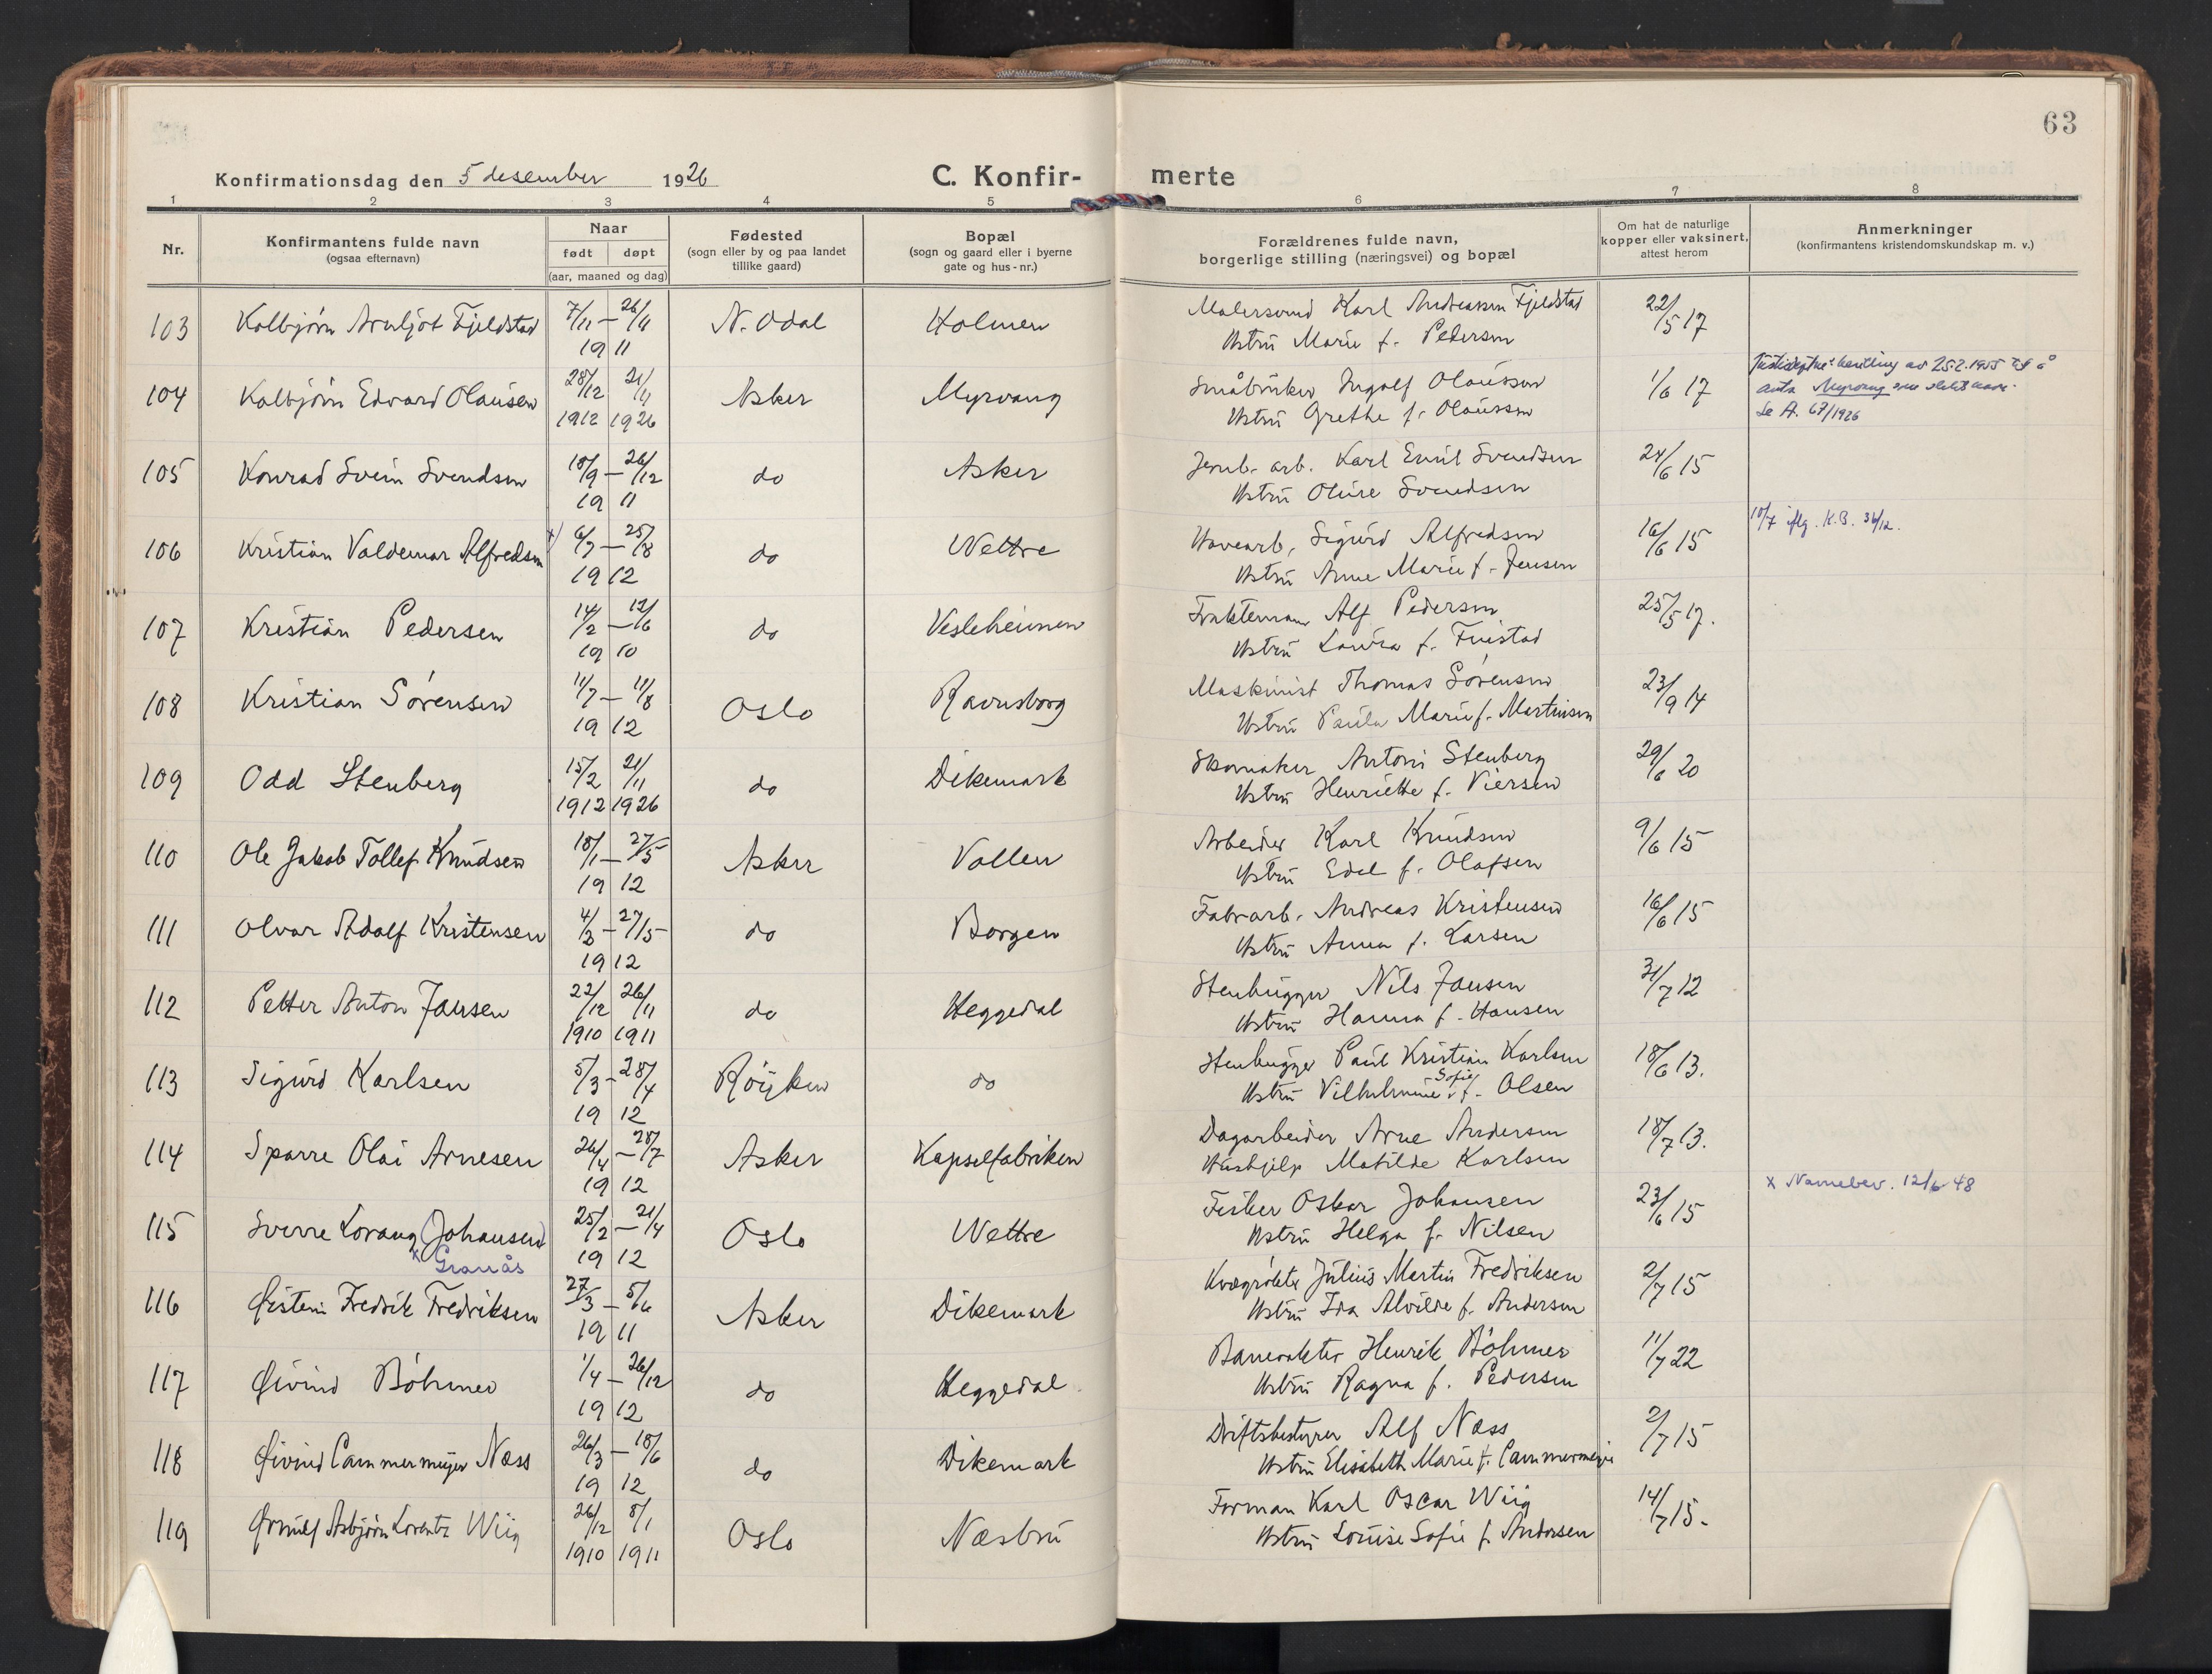 63
Konfirmationsdag den 5 desember 1926
C. Konfir- merte
1 2 3 4 5 6 7 8
Nr.
Konfirmantens fulde navn
(ogsaa efternavn)
Naar
født døpt
(aar, maaned og dag)
Fødested
(sogn eller by og paa landet
tillike gaard)
Bopæl
(sogn og gaard eller i byerne
gate og hus-nr.)
Forældrenes fulde navn,
borgerlige stilling (næringsvei) og bopæl
Om hat de naturlige
kopper eller vaksinert,
attest herom
Anmerkninger
(konfirmantens kristendomskundskap m. v.)
103 Kolbjørn Arnljot Fjeldstad 7/11 — 26/11 N. Odal Holmen Malersvend Karl Andreassen Fjeldstad 22/5 17
19 11 Hstru Marie f. Pedersen
104 Kolbjørn Edvard Olausen 28/12 21/11 Asker Myrvang Småbruker Ingolf Olausson 1/6 17
1912 1926 Hstru Grethe f. Olausson
av 25.2.1955 å
anta Myrvang som slektsnavn.
Se A. 67/1926
105 Konrad Svein Svendsen 18/9 — 26/12 do Asker Jernb. arb. Karl Emil Svendsen 24/6 15
19 11 Hstru Oline Svendsen
106 Kristian Valdemar Alfredsen x) 6/7 — 25/8 do Wettre Havearb. Sigurd Alfredsen 16/6 15 10/7 iflg. K.B. 36/12.
19 12 Hstru Anne Marie f. Jensen
107 Kristian Pedersen 14/2 — 12/6 do Vesleheimen Fraktemann Alf Pedersen 25/5 17.
19 10 Hstru Laura f.
108 Kristian Sørensen 11/7 — 11/8 Oslo Ravnsborg Maskinist Thomas Sørensen 23/9 14
19 12 Hstru Paula Marie f. Martinsen
109 Odd Stenberg 15/2 21/11 do Dikemark Skomaker Antoni Stenberg 29/6 20
1912 1926 Hstru Henriette f. Viersen
110 Ole Jakob Tollef Knudsen 18/1 — 27/5 Asker Vollen Arbeider Karl Knudsen 9/6 15
19 12 Hstru Edel f. Olafsen
111 Olvar Adolf Kristensen 4/3 — 27/5 do Borgen Fabrarb. Andreas Kristensen 16/6 15
19 12 Hstru Anna f. Larsen
112 Petter Anton Jansen 22/12 26/11 do Heggedal Stenhugger Nils Jansen 31/7 12
1910 1911 Hstru Hanna f. Hansen
113 Sigurd Karlsen 5/3 — 28/4 Røyken do Stenhugger Paul Kristian Karlsen 18/6 13.
19 12 Hstru Vilhelmine Sofie f. Olsen
114 Sparre Olai Arnesen 26/4 — 28/7 Asker Kapselfabriken Dagarbeider Arne Andersen 18/7 13.
19 12 Hushjelp Matilde Karlsen
115 Sverre Lorang (Johansen) 25/2 — 21/4 Oslo Wettre Fisker Oskar Johansen 23/6 15 x Navnebev. 12/6 48
x Granås 19 12 Hstru Helga f. Nilsen
116 Øistein Fredrik Fredriksen 27/3 — 5/6 Asker Dikemark Kvægrøkter Julius Martin Fredriksen 2/7 15
19 11 Hstru Ida Alvilde f. Andersen
117 Øivind Böhmer 1/4 — 26/12 do Heggedal Banevokter Henrik Böhmer 11/7 22
19 12 Hstru Ragna f. Pedersen
118 Øivind Cammermeyer Næss 26/3 — 18/6 do Dikemark Driftsbestyrer Alf Næss 2/7 15
19 12 Hstru Elisabeth Marie f. Cammermeyer
119 Ørnulf Asbjørn Lorentz Wiig 26/12 8/1 Oslo Næsbru Forman Karl Oscar Wiig 14/7 15.
1910 1911 Hstru Louise Sofie f. Andersen